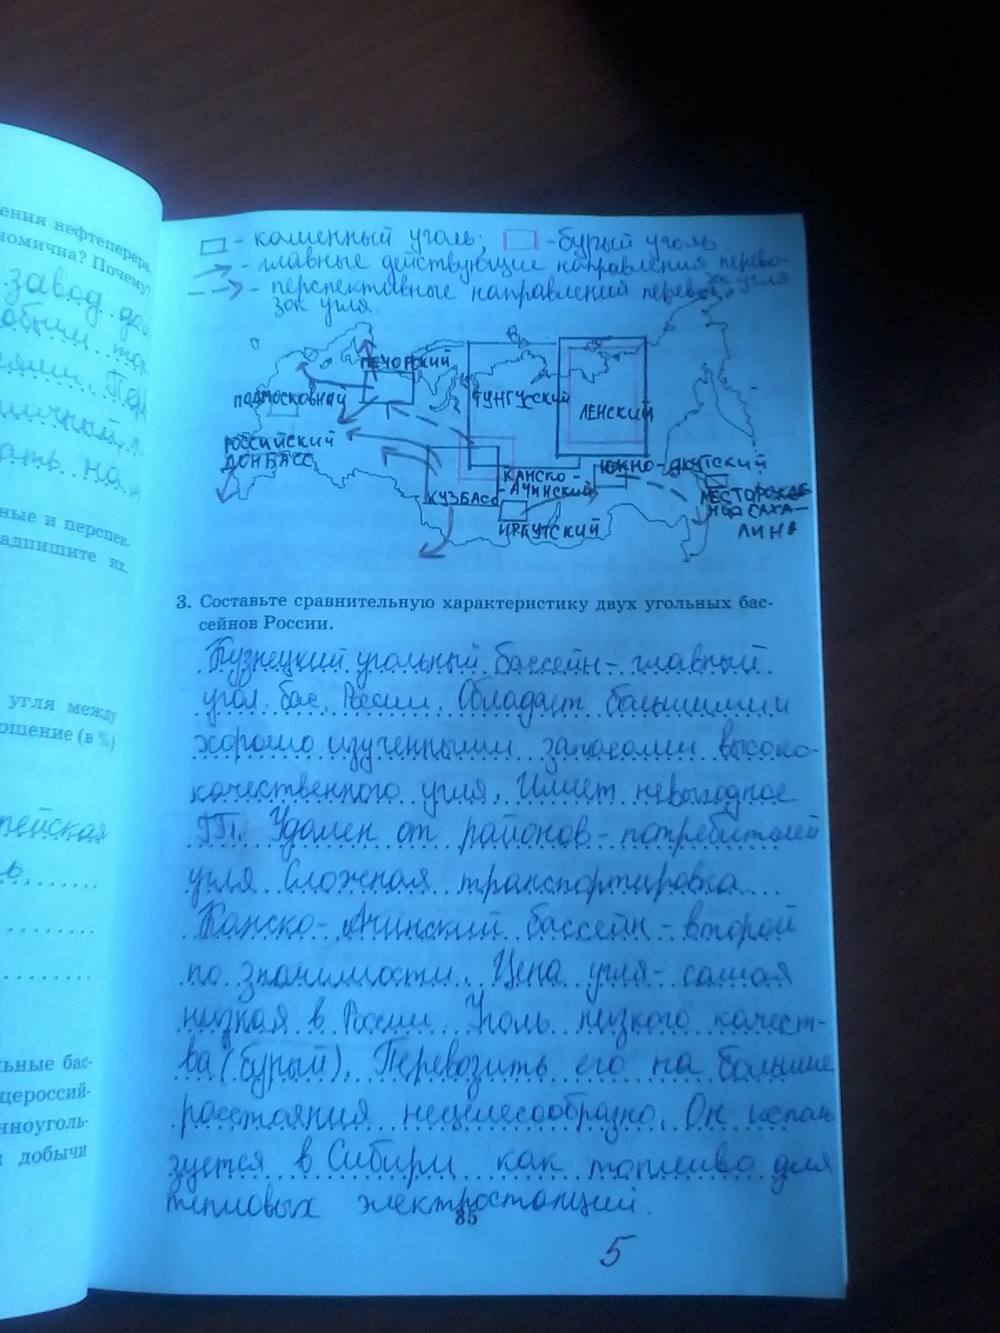 ения нефтеперера-
номична? Почему?
завод до
ные и перспек-
адпишите их.
угля между
ошение (в %)
пейская
ь
льные бас-
щероссий-
нноуголь-
и добычи
- каменный уголь; - бурый уголь
- главные действующие направления перево-
зок угля
- перспективные направлений перевоз
зок угля.
ПЕЧОРСКИЙ
ПОДМОСКОВНЫЙ
ТУНГУССКИЙ
ЛЕНСКИЙ
РОССИЙСКИЙ
ДОНБАСС
КУЗБАСС
КАНСКО-
-АЧИНСКИЙ
ИРКУТСКИЙ
ЮЖНО-ЯКУТСКИЙ
САХА-
ЛИНА
3. Составьте сравнительную характеристику двух угольных бас-
сейнов России.
Кузнецкий угольный бассейн - главный
угол. бас. России. Обладает большими и
хорошо изученными запасами высоко-
качественного угля. Имеет невыгодное
ГП. Удален от районов - потребителей
угля. Сложная транспортировка.
Канско-Ачинский бассейн - второй
по значимости. Цена угля - самая
низкая в России. Уголь низкого качест-
ва (бурый). Перевозить его на большие
расстояния нецелесообразно. Он исполь
зуется в Сибири как топливо для
тепловых электростанций.
85
5